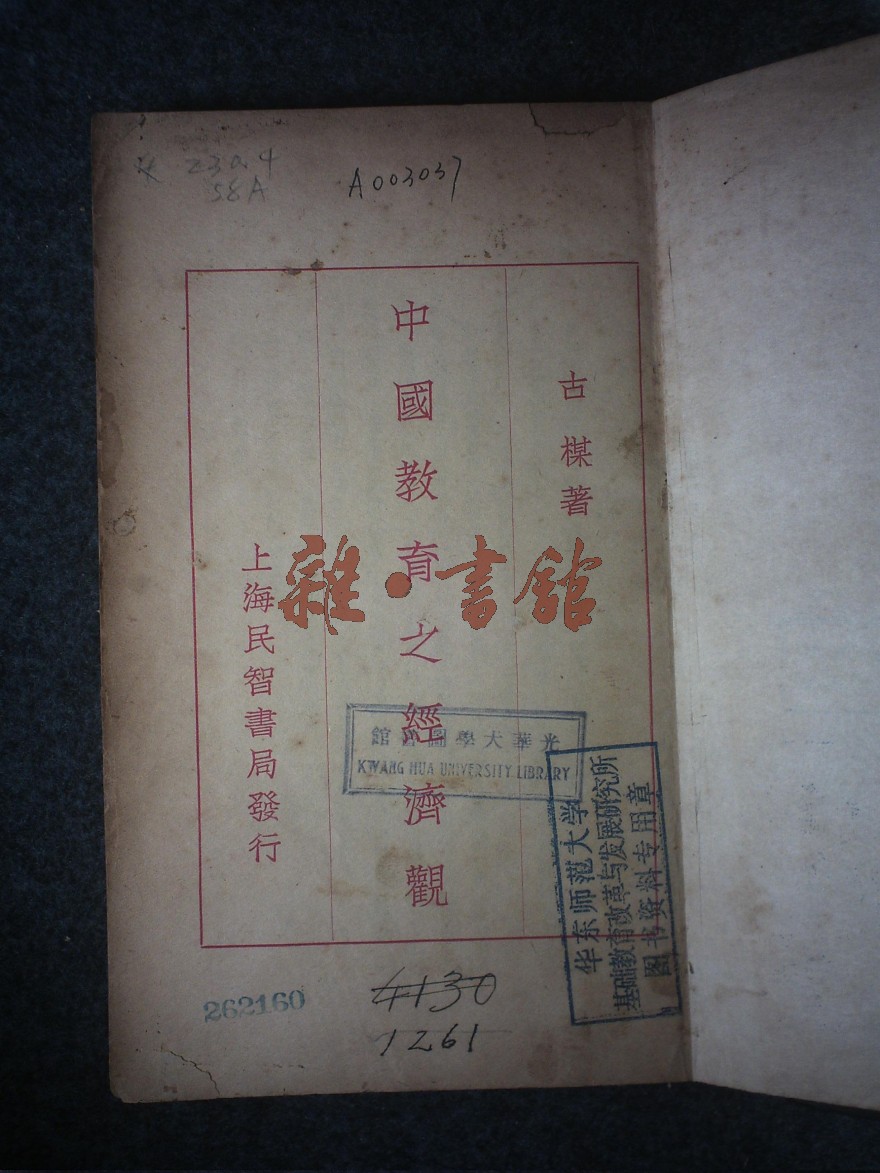 230.4
58A
A003037
古楳著
中國教育之經濟觀
上海民智書局發行
雜·書館
光華大學圖書館
KWANG HUA UNIVERSITY LIBRARY
华东师范大学
基础教育改革与发展研究所
图书资料专用章
262160
4130
1261